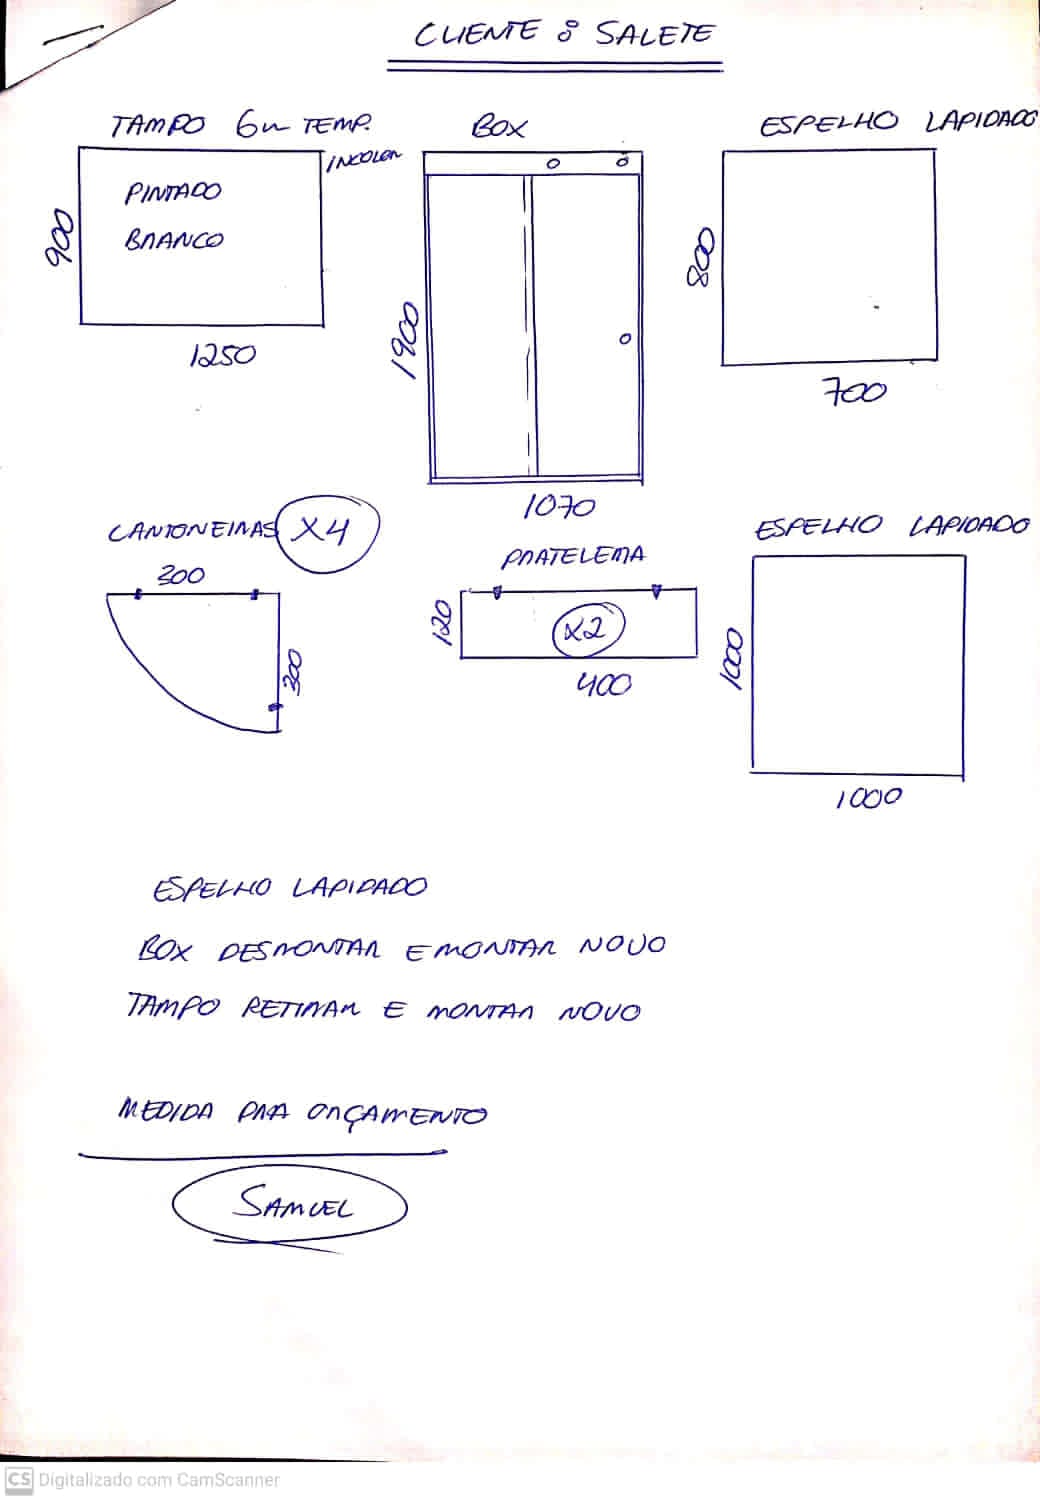 CLIENTE : SALETE
TAMPO 6m TEMP.
INCOLOR
PINTADO
BRANCO
900
1250
BOX
1900
1070
ESPELHO LAPIDADO
800
700
CANTONEIRAS X4
300
300
PRATELEIRA
120
X2
400
ESPELHO LAPIDADO
1000
1000
ESPELHO LAPIDADO
BOX DESMONTAR E MONTAR NOVO
TAMPO RETIRAR E MONTAR NOVO
MEDIDA PRA ORÇAMENTO
SAMUEL
CS Digitalizado com CamScanner